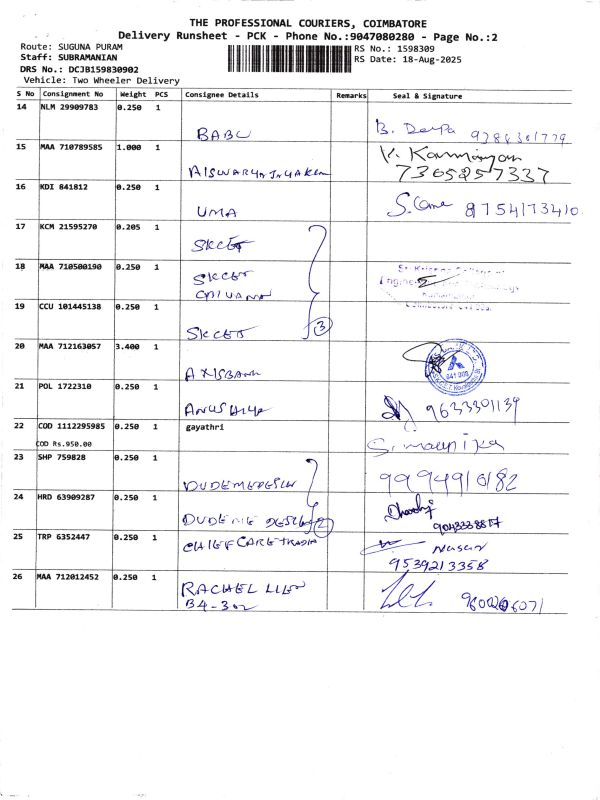 THE PROFESSIONAL COURIERS, COIMBATORE
Delivery Runsheet - PCK - Phone No.:9047080280 - Page No.:2
Route: SUGUNA PURAM
RS No.: 1598309
Staff: SUBRAMANIAN
RS Date: 18-Aug-2025
DRS No.: DCJB159830902
Vehicle: Two Wheeler Delivery
S No Consignment No Weight PCS Consignee Details Remarks Seal & Signature
14 NLM 29909783 0.250 1
BABU
B. Deepa 9786301779
15 MAA 710789585 1.000 1
7365257337
16 KDI 841812 0.250 1
UMA
8754173410
17 KCM 21595270 0.205 1
SKCET
18 MAA 710500190 0.250 1
SKCET
19 CCU 101445138 0.250 1
SKCET
3
20 MAA 712163057 3.400 1
AXISBANK
21 POL 1722310 0.250 1
9633301139
22 COD 1112295985 0.250 1 gayathri
COD Rs.950.00
23 SHP 759828 0.250 1
9994910182
24 HRD 63909287 0.250 1
2
25 TRP 6352447 0.250 1
CHIEF CARE
9539213358
26 MAA 712012452 0.250 1
RACHEL
B4-302